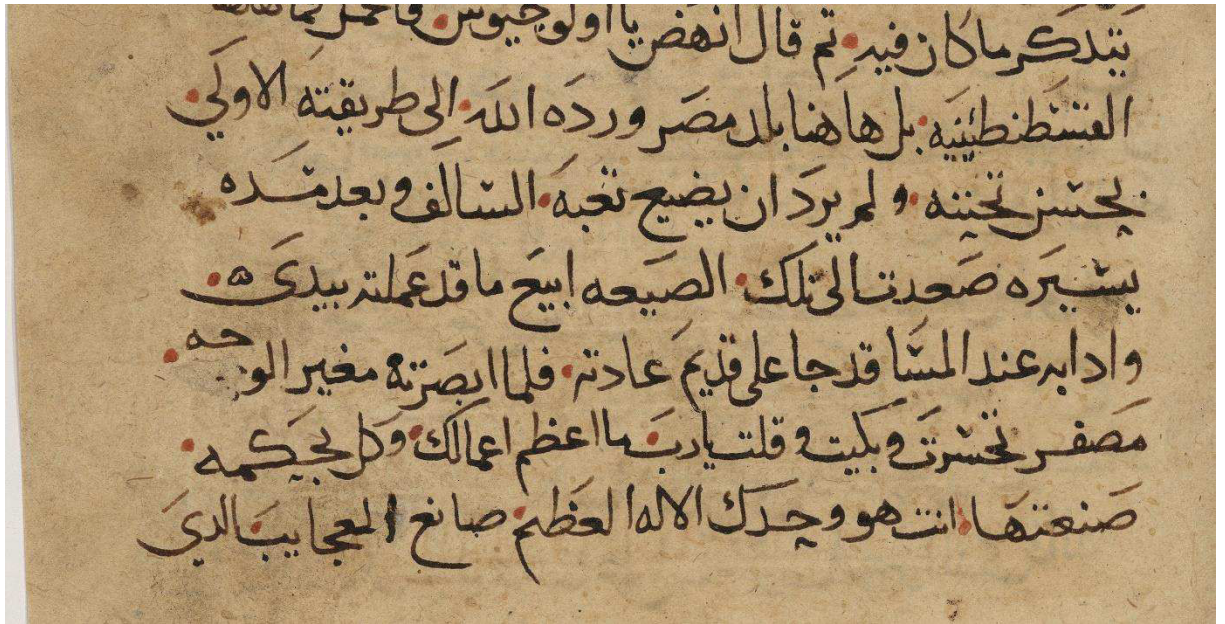 يتذكر ما كان فيه ثم قال انهض يا اولوجيوس
القسطنطينيه بل هاهنا بلد مصر ورده الله الى طريقته الاولى
بحسن تحننه ولم يرد ان يضيع تعبه السالف وبعد مده
يسيره صعدت الى تلك الضيعه ابيع ما قد عملته بيدي
واذا به عند المسا قد جا على قديم عادته فلما ابصرته مغبر الوجه
مصفر تحسرت وبكيت وقلت يا رب ما اعظم اعمالك وكل بحكمه
صنعتها انت هو وحدك الاله العظيم صانع العجايب الذي